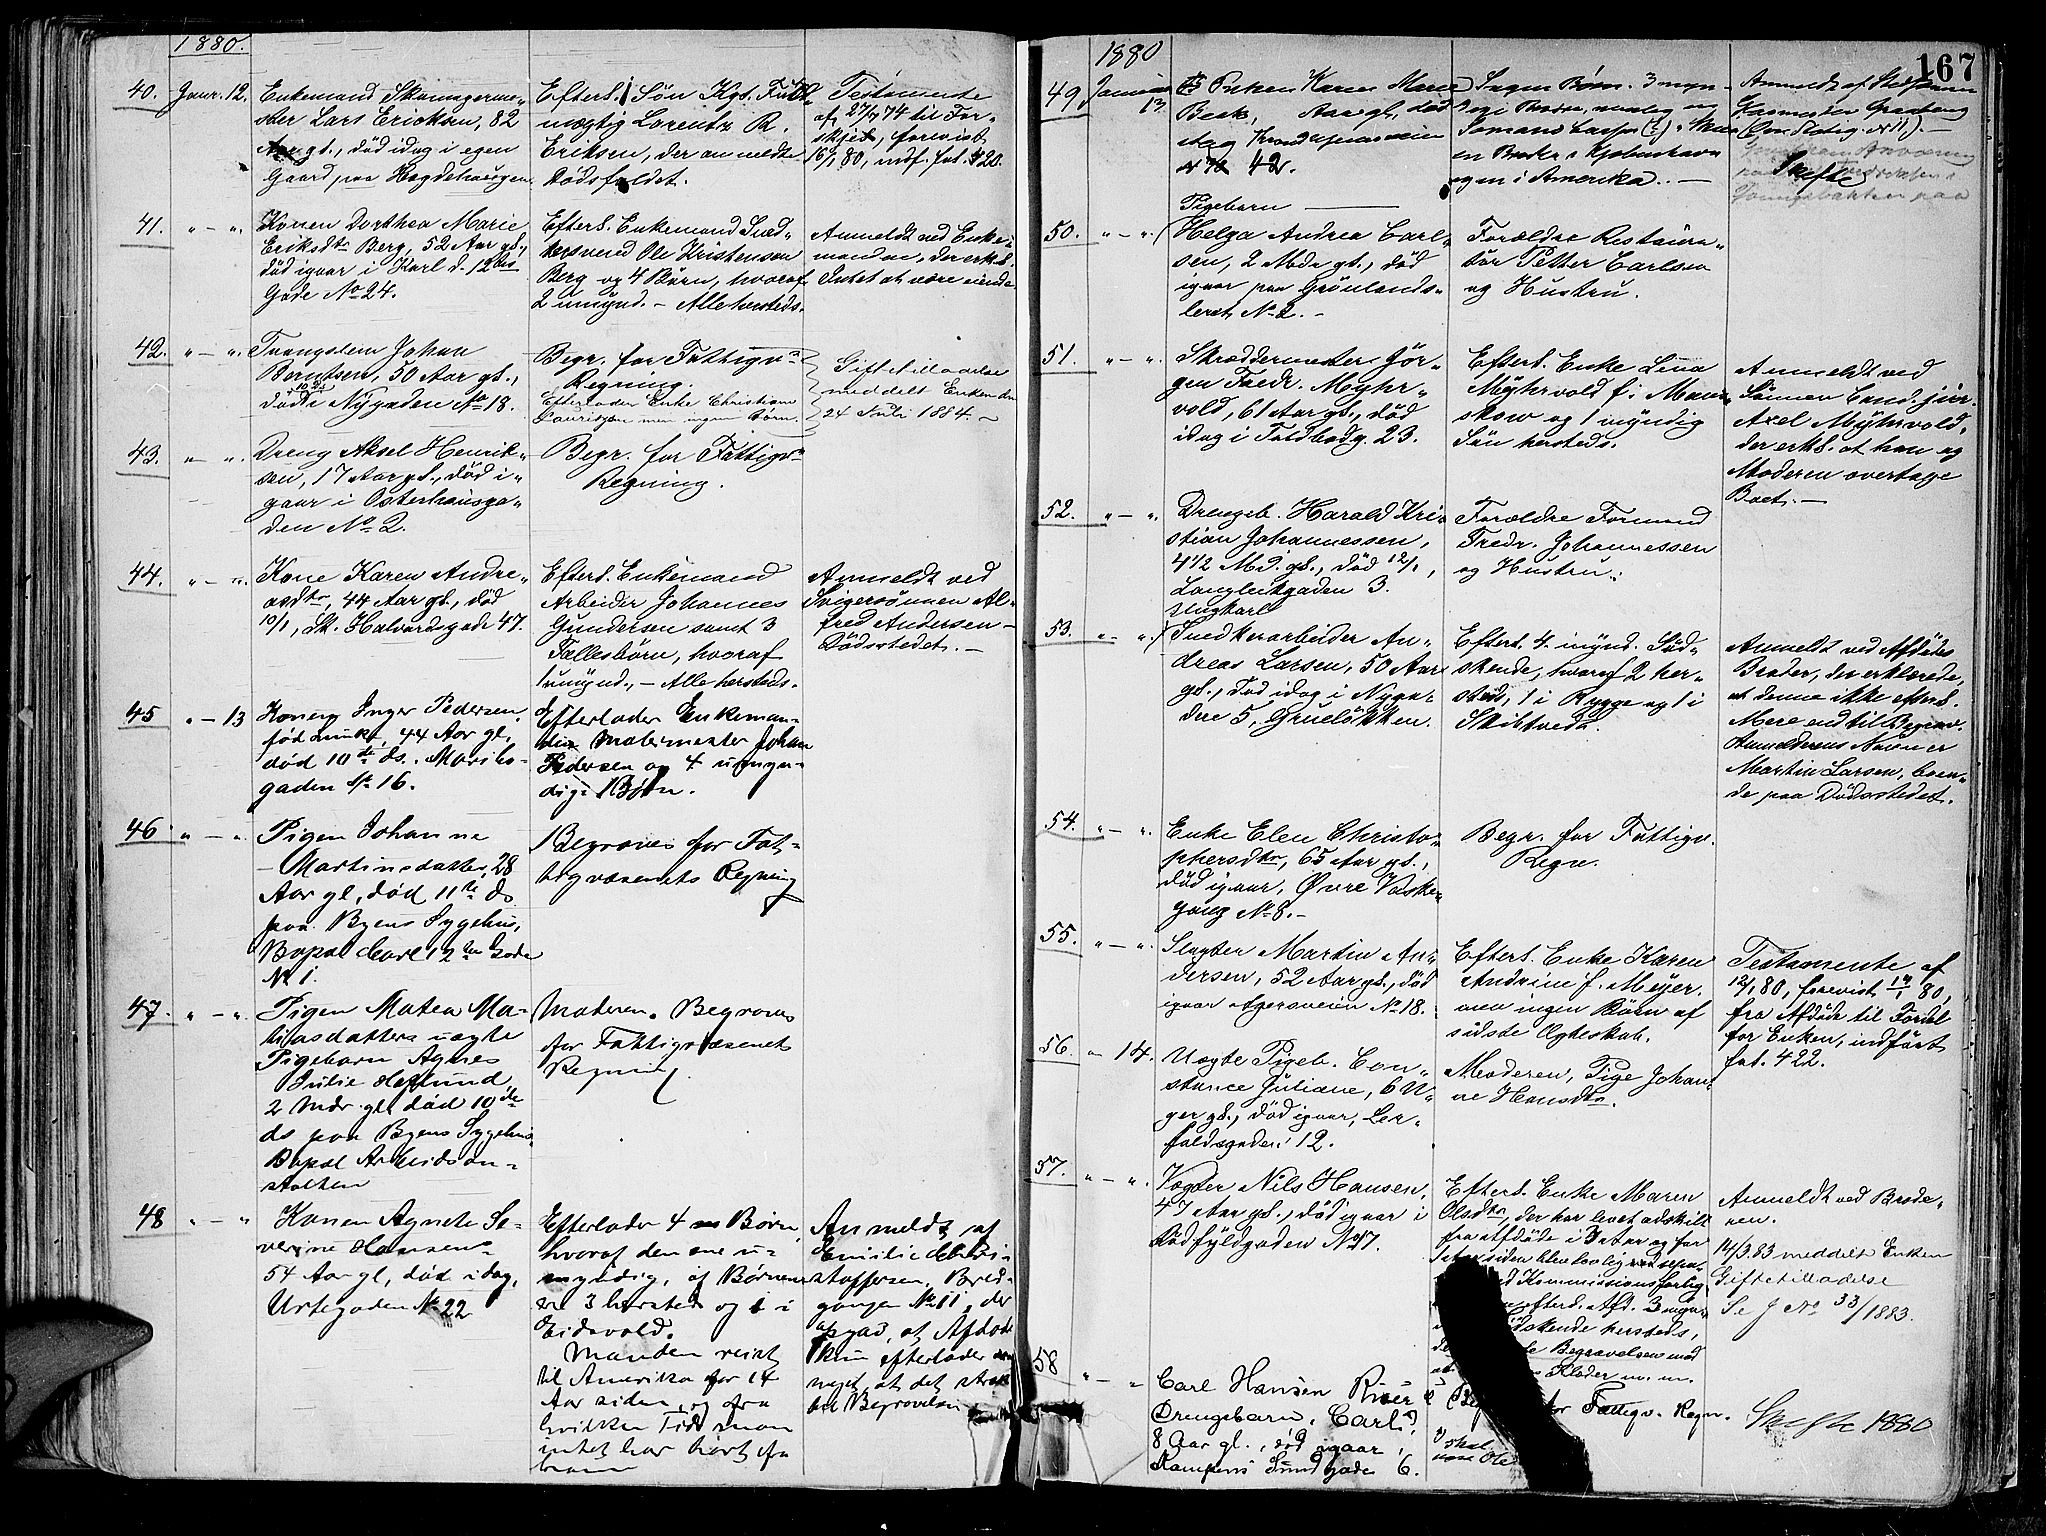 1880.
40. Janr. 12. Enkemand Skomagerme-
ster Lars Ericksen, 82
Aar gl., död idag i egen
Gaard paa Hagdehaugen
Efterl. 1 Sön Kgl. Fuld-
mægtig Lorentz R.
Eriksen, der anmeldte
Dödsfaldet.
Testamente
af 27/7 74 til For-
skjel, forevist
16/1 80, indf. fol. 420.
41. " - " Konen Dorthea Marie
Eriksdtr Berg, 52 Aar gl.,
död igaar i Karl d. 12tes
Gade No 24.
Efterl. Enkemand Sned-
kersvend Ole Kristensen
Berg og 4 Börn, hvoraf
2 umynd. - Alle hersteds.
Anmeldt ved Enke-
manden, der erkl.
Intet at være eiende
42. " - " Trangstein Johan
Berntsen, 50 Aar gl.,
död i Nygaden No 18.
Begr. for Fattigv.
Regning.
Efterlader Enke Christiane
Lauridsen men ingen Börn.
Giftetilladelse
meddelt Enken den
24 Juli 1884.
43. " - " Dreng Aksel Henrik-
sen, 17 Aar gl., död i-
gaar i Osterhausga-
den No 2.
Begr. for Fattigv.
Regning.
44. " - " Kone Karen Andre-
asdtr, 44 Aar gl., död
10/1, St. Halvardsgade 47.
Efterl. Enkemand
Arbeider Johannes
Gundersen samt 3
Fællesbörn, hvoraf
1 umynd., - Alle hersteds.
Anmeldt ved
Svigersönnen Al-
fred Andersen -
Dödsstedet. -
45 " - 13 Konen Inger Pedersen,
född 44 Aar gl,
död 10de ds. Maribo-
gaden No 16.
Efterlader Enkeman-
den Malermester Johan
Pedersen og 4 umyn-
dige Börn.
46 " - " Pigen Johanne
Martinsdatter, 28
Aar gl, död 11te ds
paa Byens Sygehus,
Bopæl Carl 12tes Gade
No 1.
Begraves for Fat-
tigvæsenets Regning
47. " - " Pigen Matea Ma-
thiasdatters uægte
Pigebarn Agnes
Julie Høglund,
2 Mdr gl, död 10de
ds paa Byens Sygehus
Bopæl Arbeidsan-
stalten
Moderen. Begraves
for Fattigvæsenets
Regning
48 " - " Konen Agnete Se-
verine Hansen
54 Aar gl, död idag,
Urtegaden No 22
Efterlader 4 Börn
hvoraf den ene u-
myndig, af Börnene
ere 3 hersteds og 1 i
Eidsvold.
Manden reist
til Amerika for 14
Aar siden, og fra
hvilken Tid man
intet har hört fra
ham
Anmeldt af
Emilie Chri-
stoffersen, Bred-
gangen No 11, der
opgav, at Afdöde
kun efterlader
noget, at det strak
til Begravelsen
167
1880
49 Januar 13 Enken Karen Marie
Beck, Aar gl, död
idag Trondhjemsveien
No 42.
Ingen Börn. 3 myn-
dige Brödre, nemlig
en Broder i Kjöbenhavn
og en i Amerika. -
Skifte
50. " - " Pigebarn
Helga Andrea Carl-
sen, 2 Mdr gl., död
igaar paa Grönlands-
leret No 2. -
Forældre Restaura-
tör Petter Carlsen
og Hustru.
51. " - " Skræddermester Jör-
gen Fredr. Myhr-
vold, 61 Aar gl., död
idag i Toldbodg. 23.
Efterl. Enke Lina
Myhrvold f.
og 1 myndig
Sön hersteds.
Anmeldt ved
Sönnen Cand. jur.
Axel Myhrvold,
der erkl. at han og
Moderen overtage
Boet. -
52. " - " Drengeb. Harald Kri-
stian Johannessen,
4 1/2 Md. gl., död 12/1,
Langleikgaden 3.
Forældre Formand
Fredr. Johannessen
og Hustru.
53. " - " Ungkarl
Snedkerarbeider An-
dreas Larsen, 50 Aar
gl., död idag i Nyga-
den 5, Grueløkken.
Efterl. 4 mynd. Söd-
skende, hvoraf 2 her-
steds, 1 i Rygge og 1 i
Skiptvedt.
Anmeldt ved Afdödes
Broder, der erklærede,
at denne ikke efterl.
Mere end til Begrav.
Anmelderens Navn er
Martin Larsen, boen-
de paa Dödsstedet.
54. " - " Enke Elen Christo-
phersdtr, 65 Aar gl.,
död igaar, Øvre Vaske-
gang No 8. -
Begr. for Fattigv.
Regn.
55. " - " Slagter Martin An-
dersen, 52 Aar gl., död
igaar Agersveien No 18.
Efterl. Enke Karen
Andrine f. Meyer.
men ingen Börn af
sidste Ægteskab.
Testamente af
12/1 80, forevist 14/1 80,
fra Afdöde til Fordel
for Enken, indfört
fol. 422.
56. " 14. Uægte Pigeb. Con-
stance Juliane, 6 U-
ger gl., död igaar, Ler-
foldgaden 12.
Moderen, Pige Johan-
ne Hansdtr.
57. " - " Vægter Nils Hansen,
47 Aar gl., död igaar i
Rödfyldgaden No 47.
Efterl. Enke Maren
Olsdtr, der har levet adskilt
fra Afdöde i 3 Aar og for
siden blev lovlig sepa-
Kommissionsforlig
efterl. Afd. 3 myn-
södskende hersteds,
Begravelsen med
Klæder m. m.
Anmeldt ved Brode-
ren.
14/3 83 meddelt Enken
Giftetilladelse
Se J No 33/1883.
58 " - " Carl Hansen
Drengebarn, Carl
8 Aar gl., död igaar,
Kampens Sundgade 6.
for Fattigv. Regn.
skal
Ole
Skifte 1880